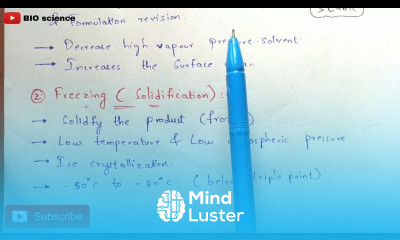 BIO science
& formulation revision.
→ Decrease high vapour solvent.
→ Increases the Surface
② Freezing (Solidification) :
→ Solidify the product
→ Low temperature & Low pressure
→ Ice crystallization
→ -50°C to -80°C triple point)
Subscribe
Mind
Luster